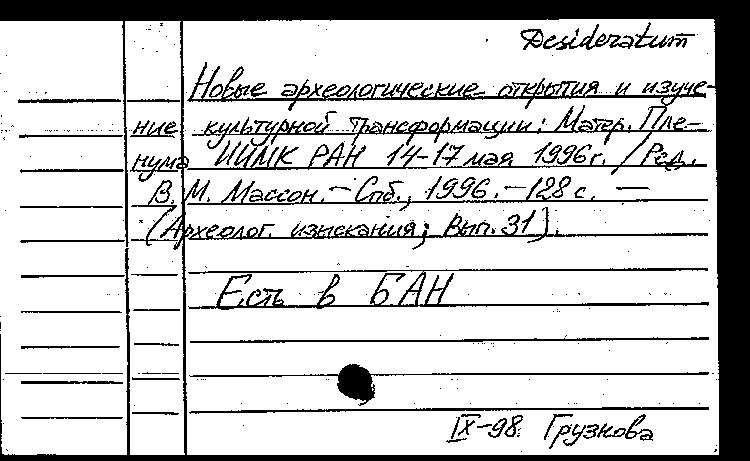 Desideratum
Новые археологические открытия и изуче-
ние культурной трансформации: Матер. Пле-
нума ИИМК РАН 14-17 мая 1996г. / Ред.
В. М. Массон. — Спб., 1996. — 128 с. —
(Археолог. изыскания; Вып. 31).
Есть в БАН
IX-98. Грузнова